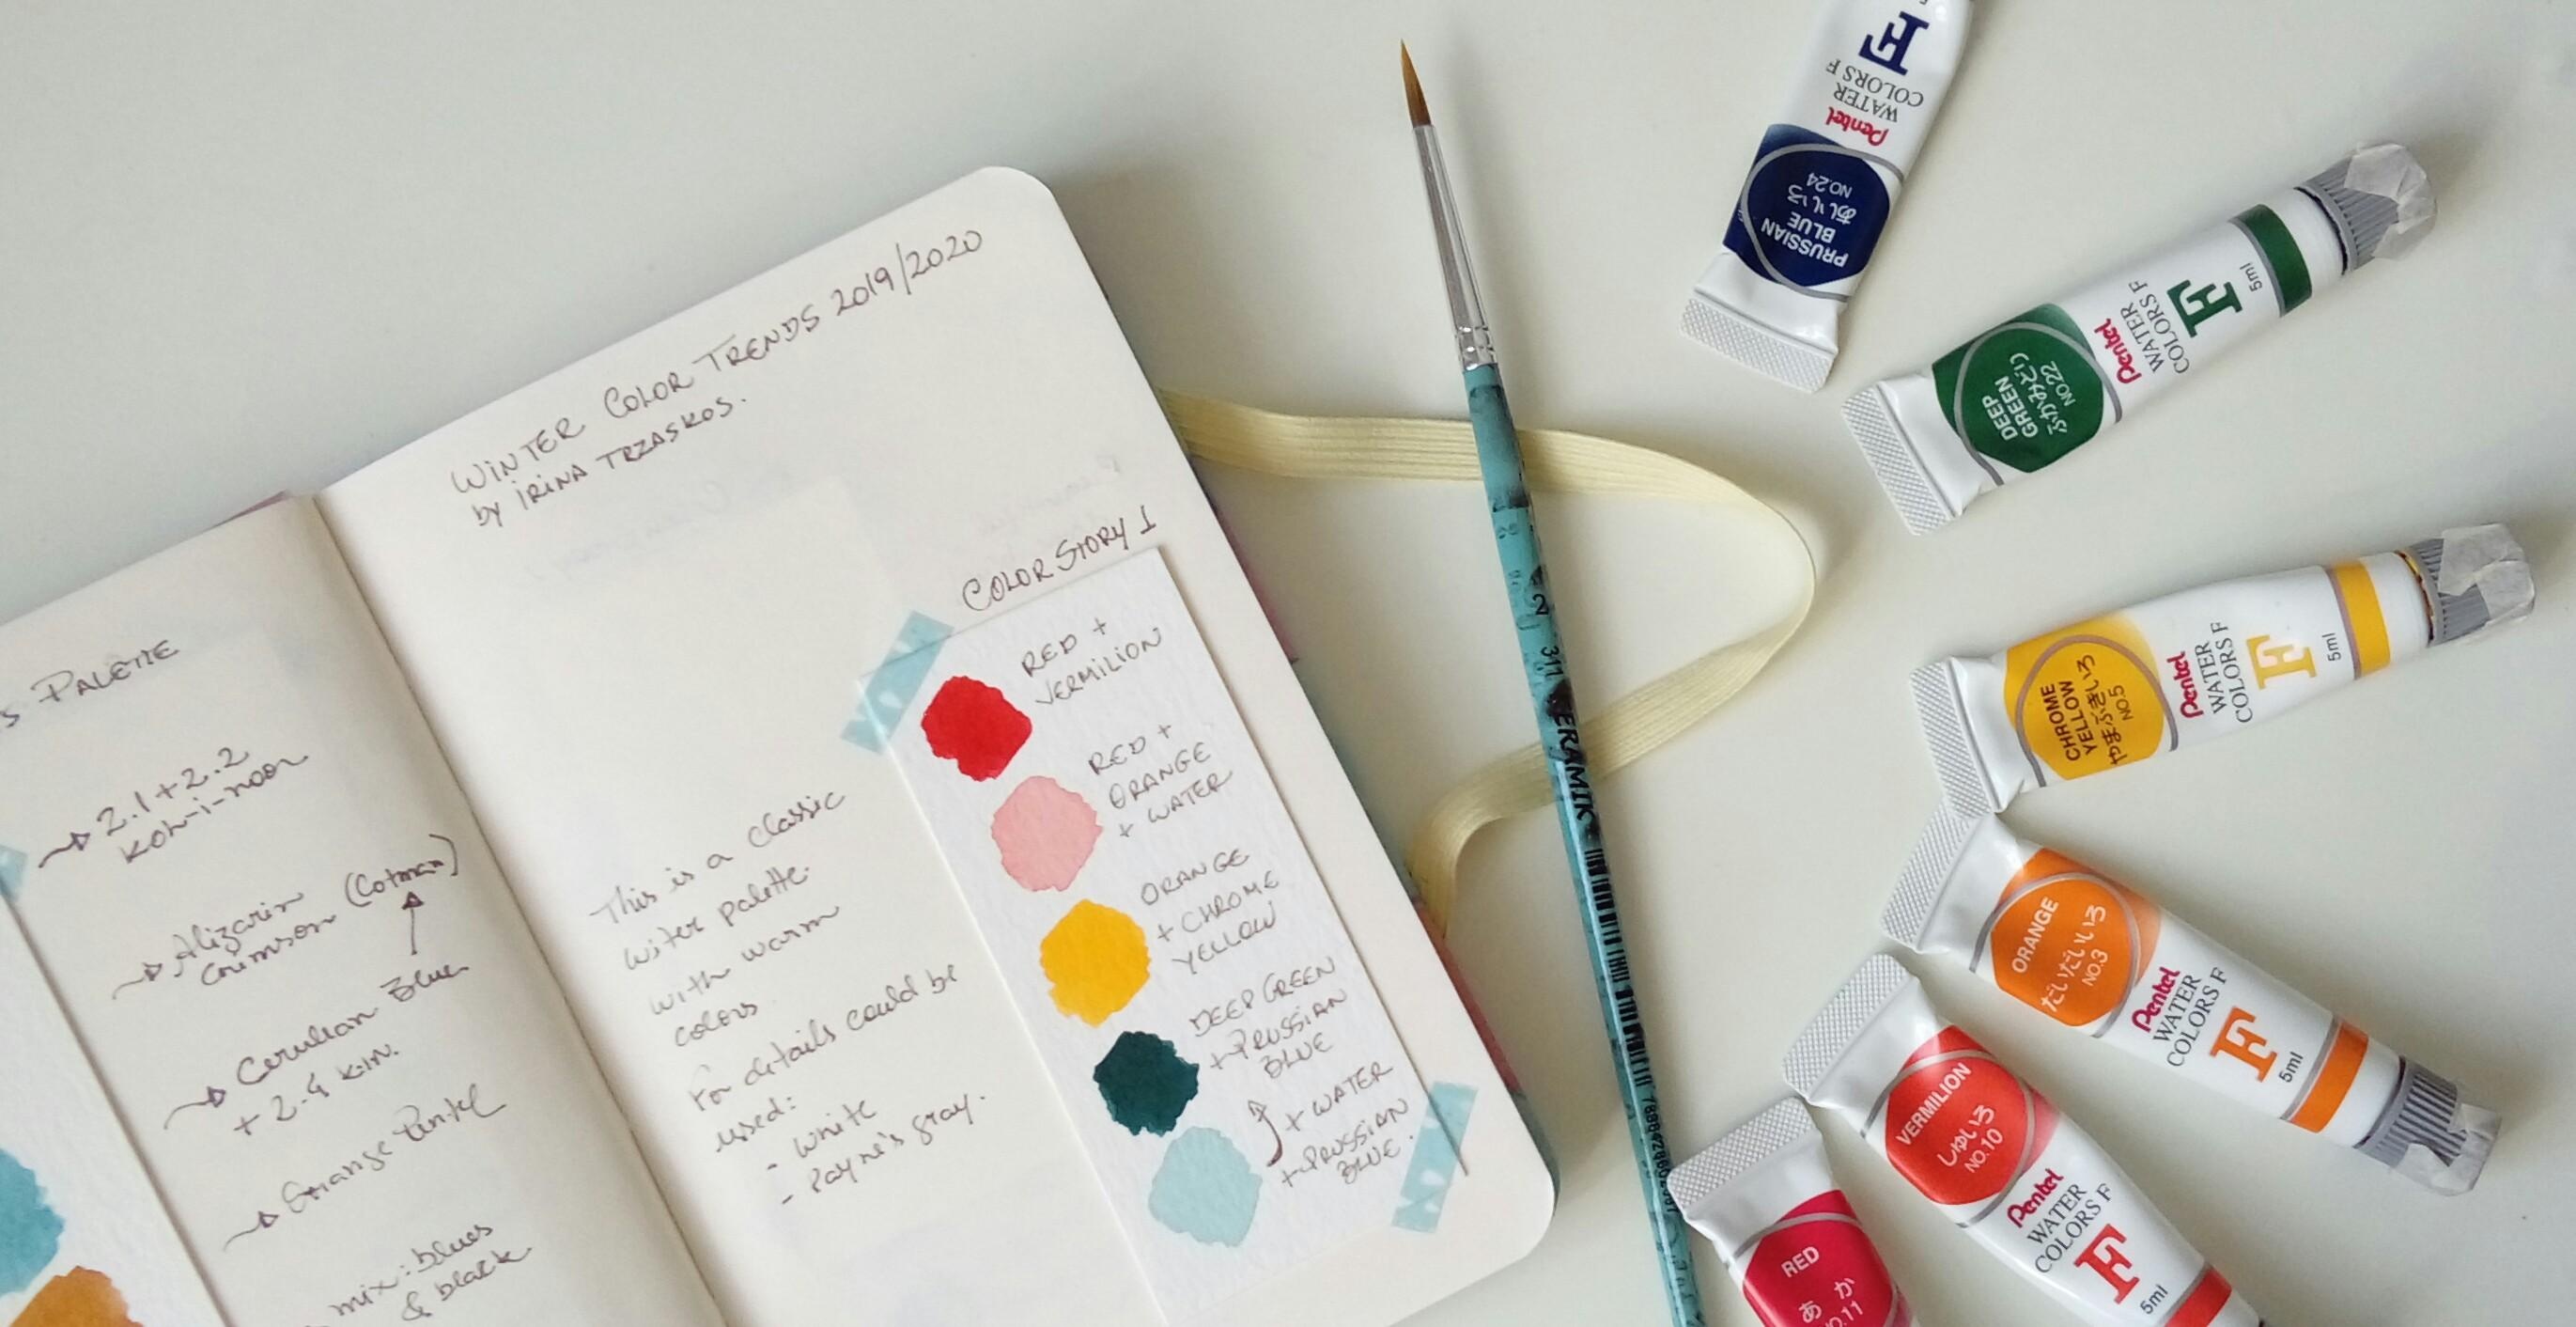 s PALETTE
2.1+2.2
KOH-i-noor
Alizarin
crimson (Cotman)
Cerulean Blue
+ 2.4 K.I.N.
Orange Pentel
mix: blues
& black
WiNTER COLOR TRENDS 2019/2020
by IRINA TRZASKOS.
COLOR STORY I
RED +
VERMILION
RED +
ORANGE
+ WATER
ORANGE
+ CHROME
YELLOW
DEEP GREEN
+ PRUSSIAN
BLUE
+ WATER
+ PRUSSIAN
BLUE.
This is a classic
winter palette.
with warm
colors
For details could be
used:
- White
- Payne's gray.
2
ERAMIK
PRUSSIAN
BLUE
あいいろ
NO.24
Pentel
WATER
COLORS F
F
DEEP
GREEN
ふかみどり
NO.22
Pentel
WATER
COLORS F
F
5ml
CHROME
YELLOW
やまぶきいろ
NO.5
Pentel
WATER
COLORS F
F
5ml
ORANGE
だいだいいろ
NO.3
Pentel
WATER
COLORS F
F
5ml
VERMILION
しゅいろ
NO.10
Pentel
WATER
COLORS F
F
5ml
RED
あか
NO.11